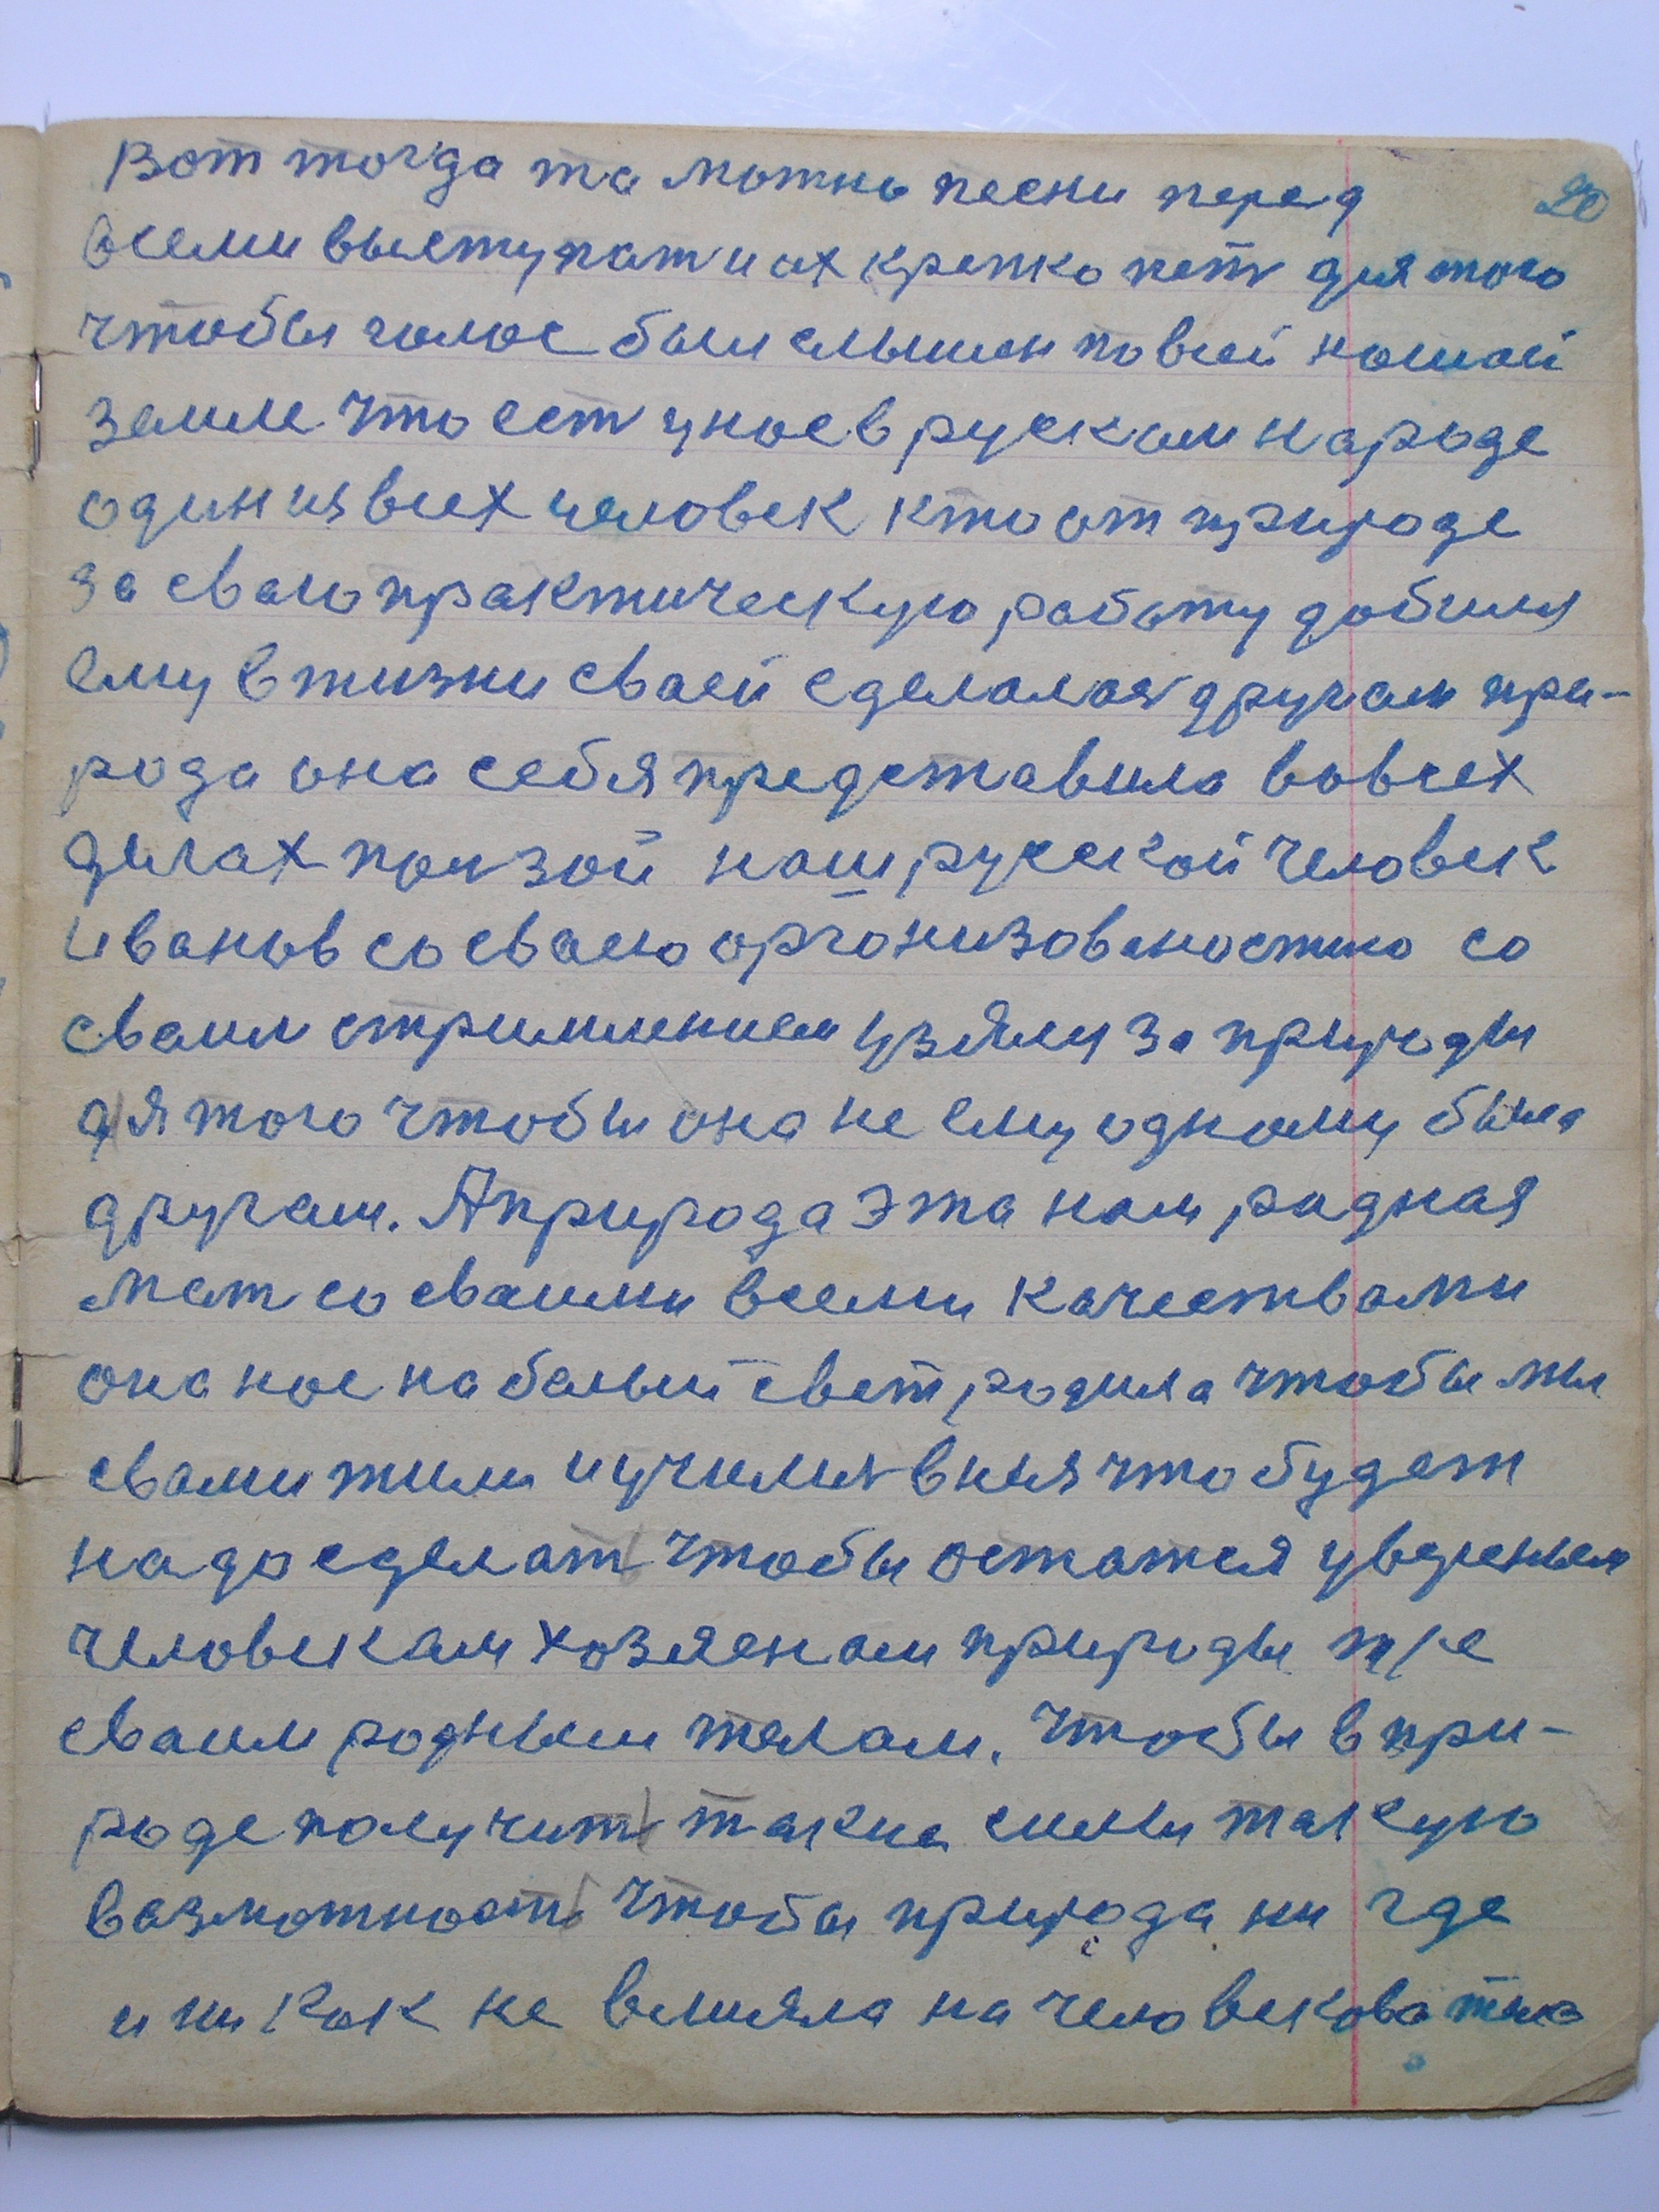 Вот тогда та можно песни перед 20
всеми выступат и их крепко петь для того
чтобы голос был слышен по всей ношай
земле что ест у нос в руском народе
один из всех человек кто от природе
за сваю практическую роботу добился
ему в жизни сваей сделолоя другам при-
рода она себя представила во всех
делах ползой нош русской человек
Иванов со сваю оргонизованостию со
сваим стримлением узялся за природы
для того чтобы она не ему одному была
другам. А природа эта ном родная
мат со сваими всеми качествоми
она нос на белый свет родила чтобы мы
свами жили и училися в ния что будет
надо сделат чтобы остатся уверенным
человекам хозяеном природы
сваим родным телам. чтобы в при-
роде получит такие силы такую
возможност чтобы природа ни где
и ни как не влияла на человекова тело